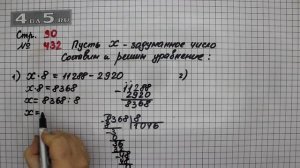 4 ДЗ 5.RU
Стр. 90
№ 432
Пусть x - задуманное число
Составим и решим уравнение:
1) x · 8 = 11288 - 2920
2)
x · 8 = 8368
x = 8368 : 8
x =
- 11288
2920
8368
- 8368 | 8
8
1046